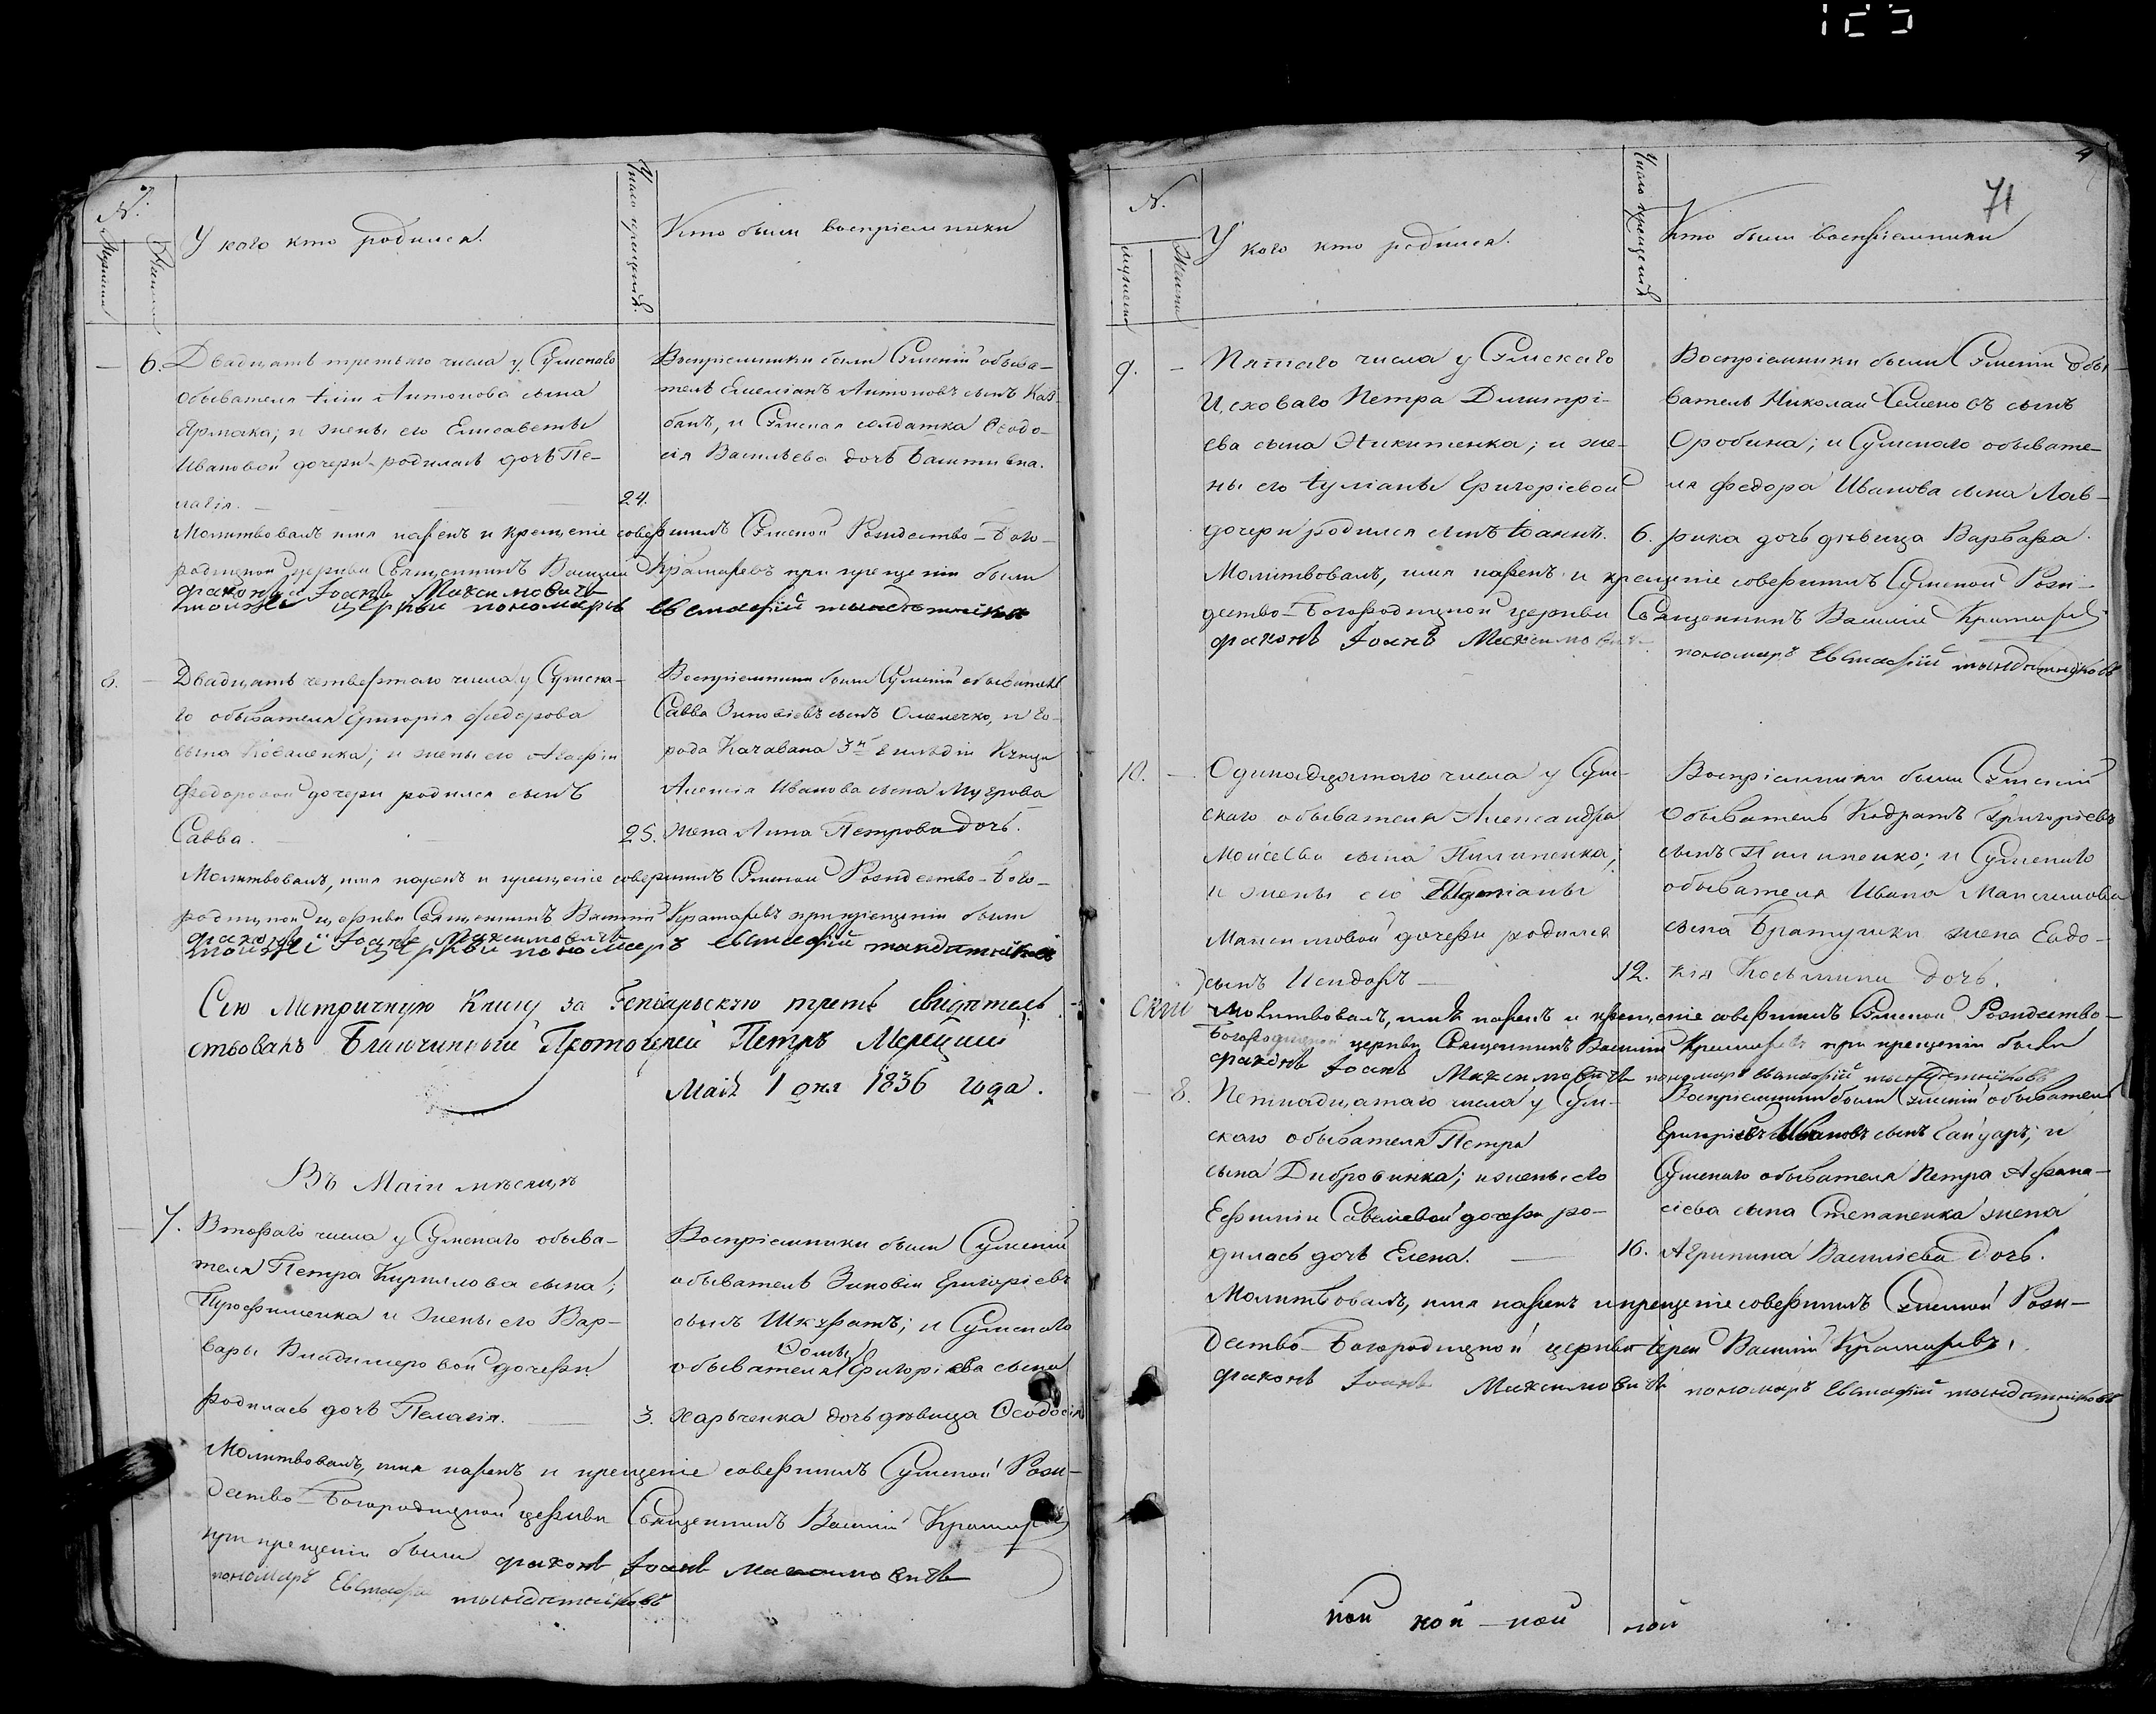 125
№.
Мужеска
Женска
У кого кто родился.
Число крещенія.
Кто были воспріемники
6. Двадцать третьяго числа у Сумскаго
обывателя Антонова сына
Ярмака; и жены его Елисаветы
Ивановой дочери родилась дочь Пе-
лагія. 24.
Воспріемники были Сумскій обыва-
тель Емеліанъ Антоновъ сынъ Каз-
банъ, и Сумская солдатка Ѳеодо-
сія Васильева дочь
Молитвовалъ имя нарекъ и крещеніе совершилъ Сумской Рождество-Бого-
родицкой церкви Священникъ Василій Крамаревъ при крещеніи были
диаконъ Іоанъ Максимовичъ
тойжей церкви пономарь Евстафій
8. Двадцать четвертаго числа у Сумска-
го обывателя Григорія Федорова
сына Коваленка; и жены его Агафіи
Федоровой дочери родился сынъ
Савва. 25.
Воспріемники были Сумскій обыватель
Савва Зиновіевъ сынъ Омелечко, и го-
рода 3й гильдіи Купца
Алексія Иванова сына
жена Анна Петрова дочь.
Молитвовалъ, имя нарекъ и крещеніе совершилъ Сумской Рождество-Бого-
родицкой церкви Священникъ Василій Крамаревъ при крещеніи были
диаконъ Іоанъ Максимовичъ
тойжей церкви пономарь Евстафій
Сію Метричную Книгу за Генварьскую треть свидѣтель-
ствовалъ Благочинный Протоіерей Петръ
Маія 1 дня 1836 года.
Въ Маіи мѣсяцѣ
7. Втораго числа у Сумскаго обыва-
теля Петра Кирилова сына;
Трофименка и жены его Вар-
вары Владимеровой дочери
родилась дочь Пелагія. 3.
Воспріемники были Сумскій
обыватель Зиновіи Григоріевъ
сынъ Шкуратъ; и Сумскаго
Ѳомы
обывателя Григоріева сына
Харьченка дочь дѣвица Ѳеодосія
Молитвовалъ, имя нарекъ и крещеніе совершилъ Сумской Рож-
дество-Богородицкой церкви Священникъ Василій Крамаревъ
при крещеніи были диаконъ Іоанъ Максимовичъ
пономарь Евстафій
4
71
№.
мужеска
Женска
У кого кто родился.
Число крещенія
Кто были воспріемники
9. Пятаго числа у Сумскаго
Петра Димитрі-
ева сына Никитенка; и же-
ны его Іуліаны Григоріевой
дочери родился сынъ Іоаннъ. 6.
Воспріемники были Сумскіи обы-
ватель Николай Семеновъ сынъ
Оробина; и Сумскаго обывате-
ля Федора Иванова сына Лав-
рика дочь дѣвица Варвара.
Молитвовалъ, имя нарекъ и крещеніе совершилъ Сумской Рож-
дество-Богородицкой церкви Священникъ Василіе Крамаревъ
диаконъ Іоанъ Максимовичъ
пономарь Евстафій
10. Одинадцатаго числа у Сум-
скаго обывателя Александра
Моисеева сына Пилипенка;
и жены его
Максимовой дочери родился
сынъ Исидоръ 12.
Воспріемники были Сумскій
обыватель Кодратъ Григоріевъ
сынъ Пилипенко; и Сумскаго
обывателя Ивана Максимова
сына Братушки жена Евдо-
кія Косьмина дочь.
Молитвовалъ, имя нарекъ и крещеніе совершилъ Сумской Рождество-
Богородицкой церкви Священникъ Василій Крамаревъ при крещеніи были
диаконъ Іоанъ Максимовичъ пономарь Евстафій
8. Пятнадцатаго числа у Сум-
скаго обывателя Петра
сына Дибровинка; и жены его
Ефиміи Савеліевой дочери ро-
дилась дочь Елена. 16.
Воспріемники были Сумскій обыватель
Григоріевъ Ивановъ сынъ Гайдаръ; и
Сумскаго обывателя Петра Афана-
сіева сына Степаненка жена
Агрипина Василіева дочь.
Молитвовалъ, имя нарекъ и крещеніе совершилъ Сумской Рож-
дество-Богородицкой церкви Іерей Василій Крамаревъ,
диаконъ Іоанъ Максимовичъ пономарь Евстафій
ной ной-ной ной